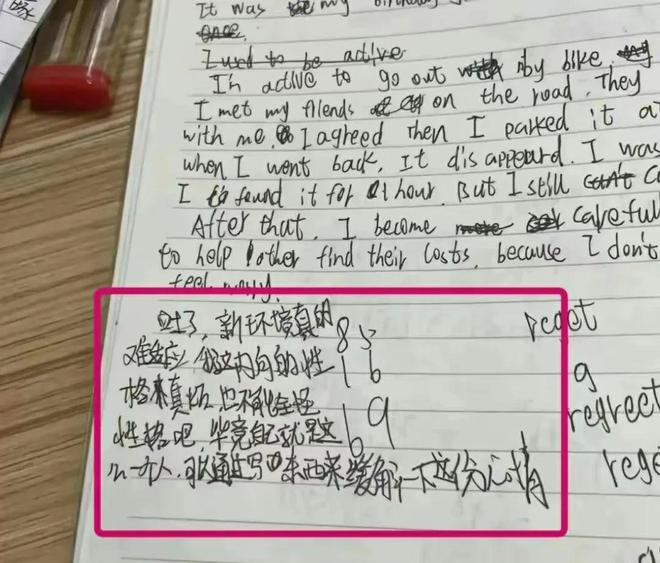 缘
It was my birthday
once.
I used to be active
I'm active to go out by bike.
I met my friends on the road. They
with me. I agreed Then I parked it at
when I went back, It disappeard. I was
I found it for 1 hour. But I still can't
After that, I become more careful
to help other find their losts, because I don't
feel
新环境真的
难适应 我这内向的性
格真 也不能全怪
性格吧, 毕竟自己就是这
么一个人, 可以通过写 东西来缓解一下这份心情
85
16
69
reget
g
regrect
rege